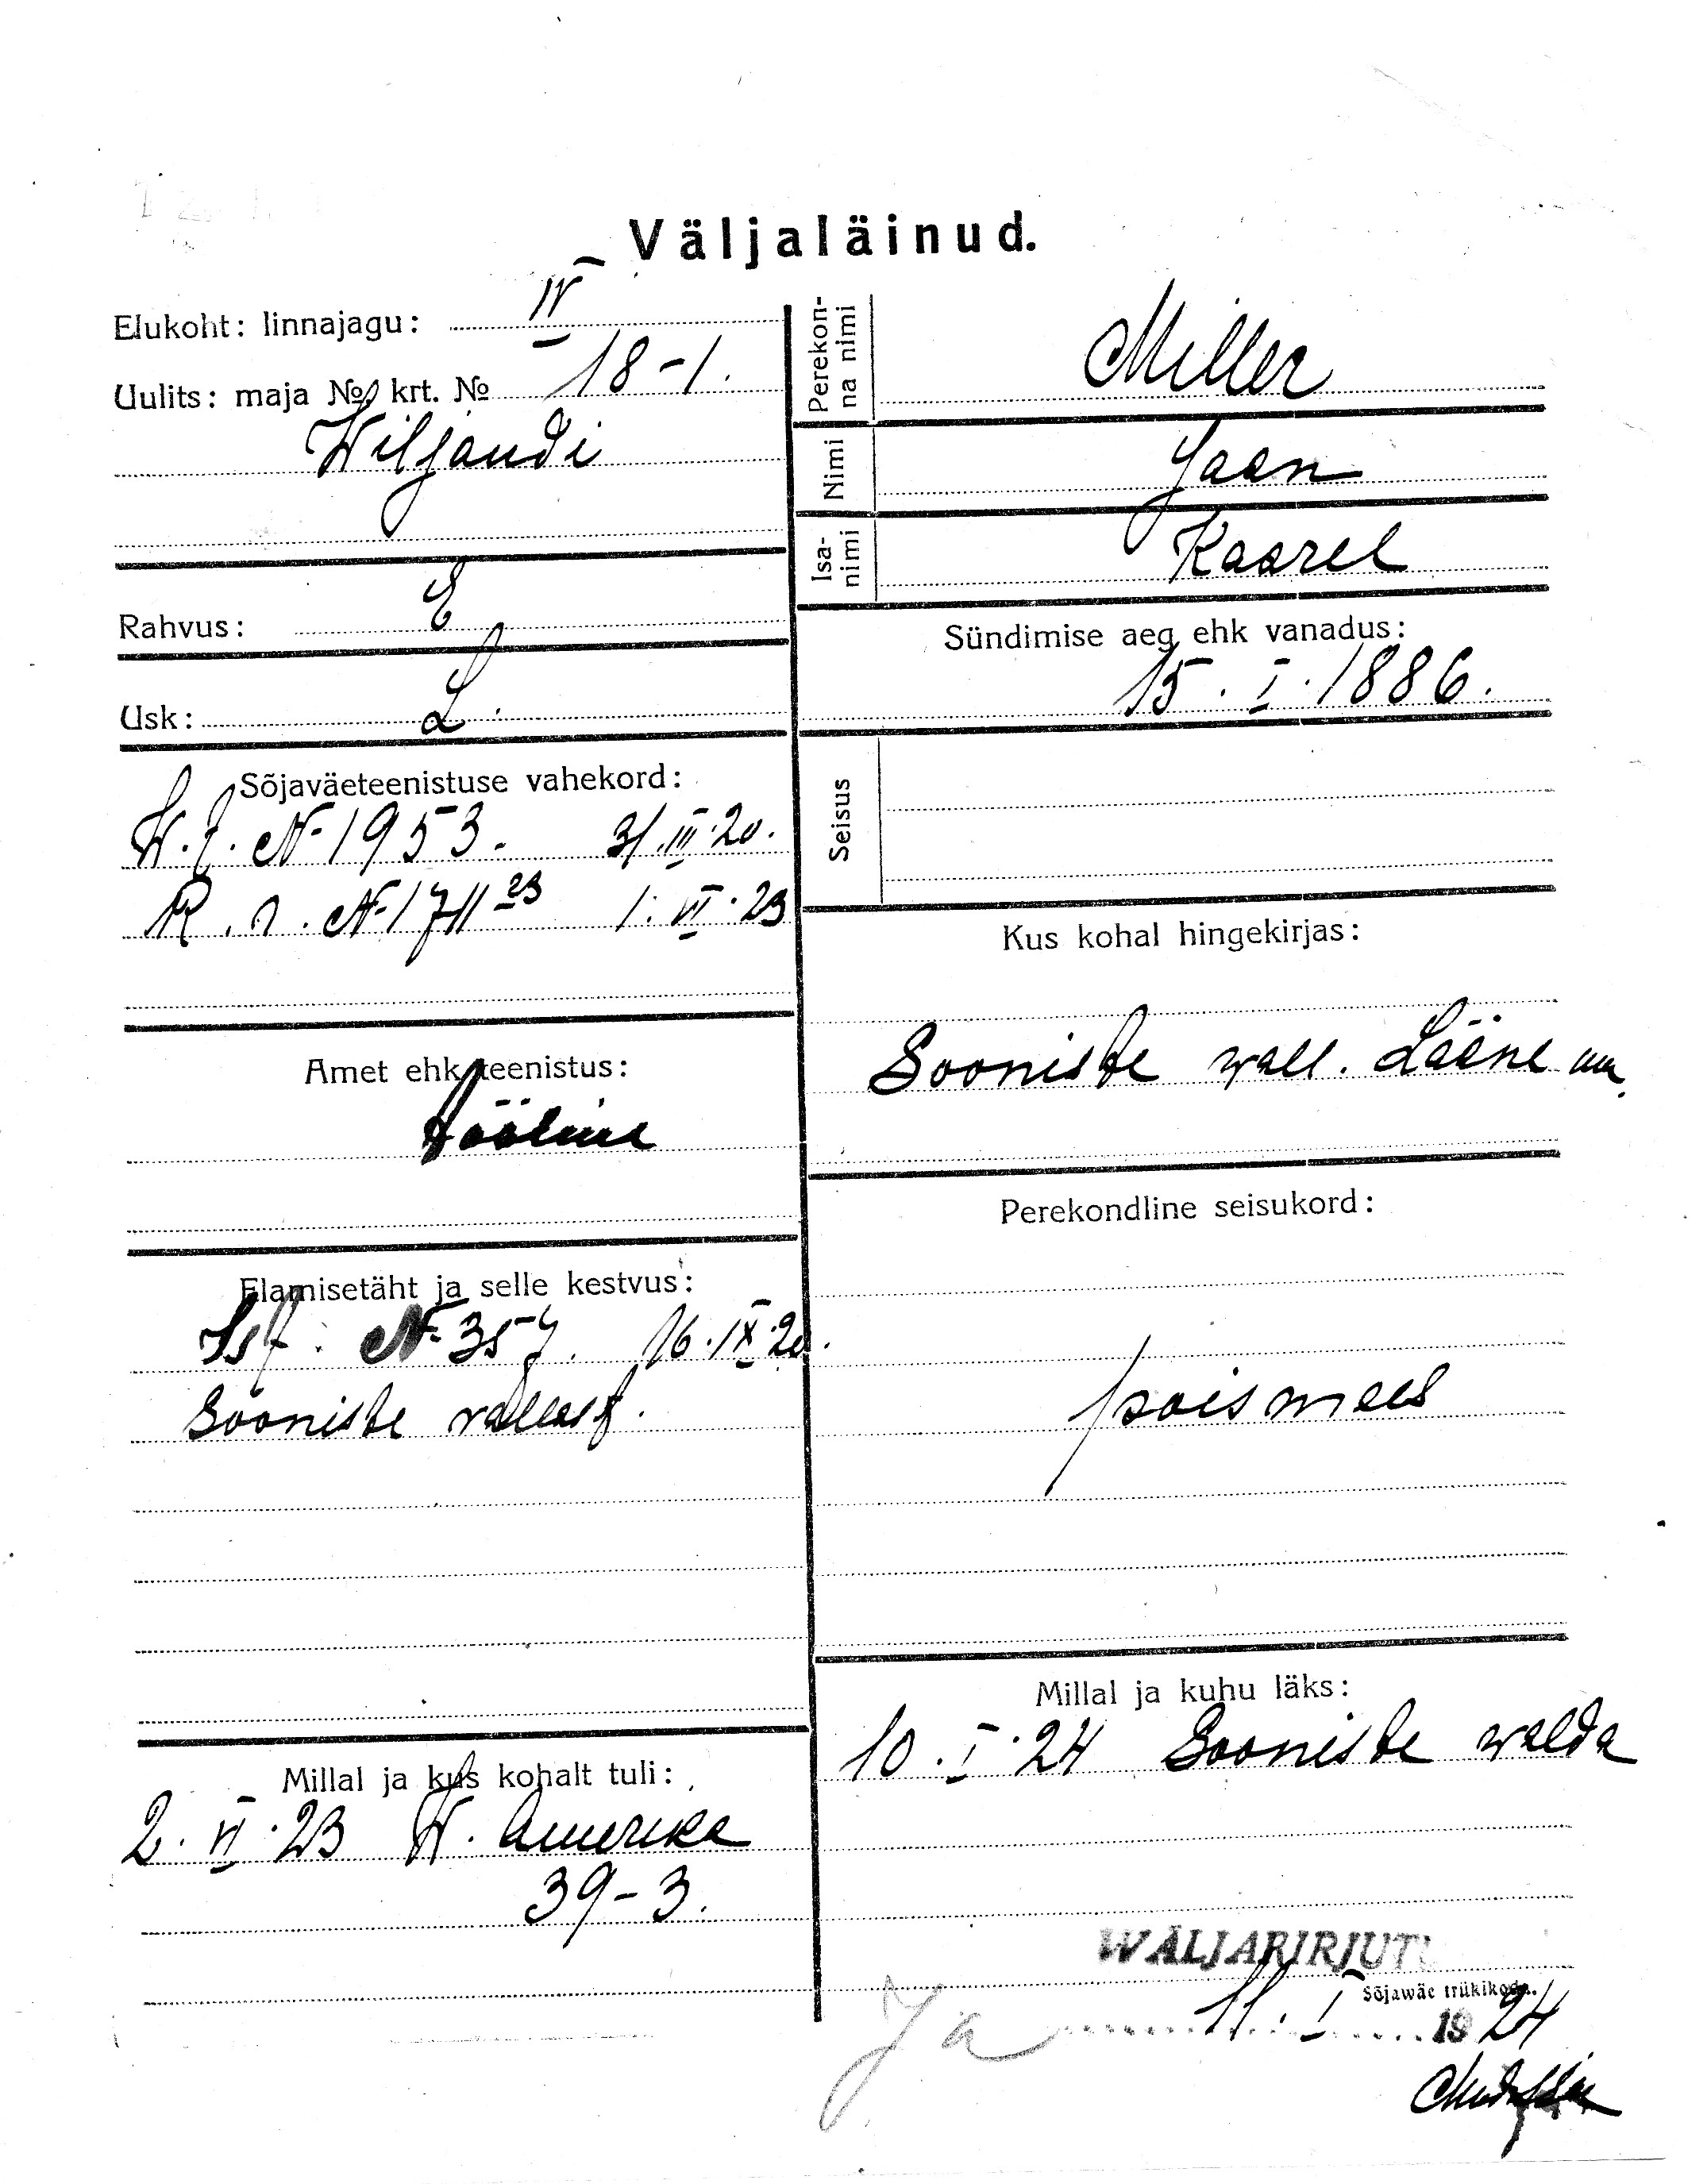 Väljaläinud.
Elukoht: linnajagu: IV
Uulits: maja № krt. № 18-1.
Wiljandi
Rahvus: E
Usk: L.
Sõjaväeteenistuse vahekord:
W.t. № 1953. 31.III.20.
R.n. № 1711 23 1.VI.23
Amet ehk teenistus:
tööline
Elamisetäht ja selle kestvus:
Ist. № 357. 16.IX.20.
Sooniste vallast.
Millal ja kus kohalt tuli:
2.VI.23 W. Amerika
39-3.
Perekon-
na nimi
Miller
Nimi
Jaan
Isa-
nimi
Kaarel
Sündimise aeg ehk vanadus:
15.I.1886.
Seisus
Kus kohal hingekirjas:
Sooniste wall. Lääne m.
Perekondline seisukord:
poismees
Millal ja kuhu läks:
10.I.24 Sooniste walda
WÄLJAKIRJUT
Sõjawäe trükikoda.
Ja 11.I 1924